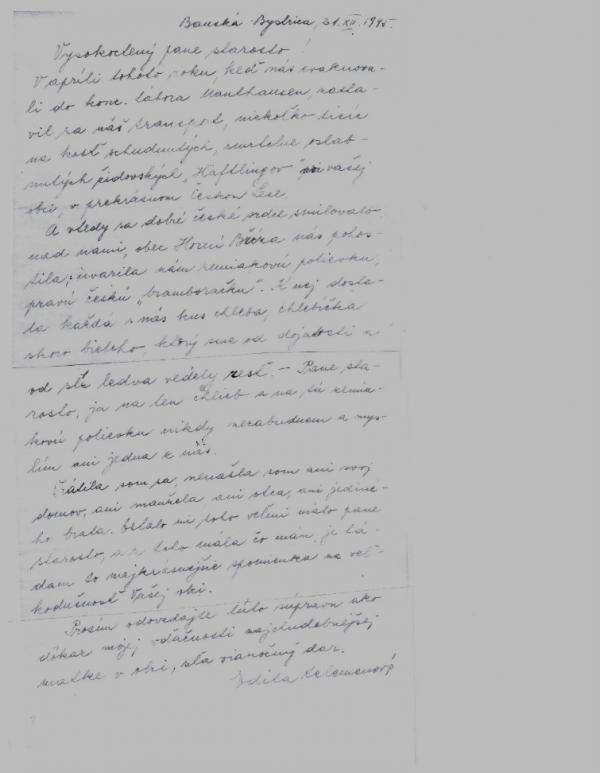 Banská Bystrica, 21.XII.1945.
Vysokoctený pane starosto!
V apríli tohoto roku, keď nás evakuova-
li do konc. tábora Mauthausen, zasta-
vil sa náš transport, niekoľko tisíc
na kosť schudnutých, smrtelne oslab-
nutých židovských „Häftlingov" vo vašej
obci, v prekrásnom Českom Lese.
A vtedy sa dobré české srdce smilovalo
nad nami, obec Horní Bříza nás pohos-
tila, uvarila nám zemiakovú polievku,
pravú českú „bramboračku". K nej dosta-
la každá z nás kus chleba, chlebíčka
skoro bieleho, ktorý sme od dojatosti a
od sĺz ledva vedely zesť. – Pane sta-
rosto, ja na ten chlieb a na tú zemia-
kovú polievku nikdy nezabudnem a mys-
lím ani jedna z nás.
Vrátila som sa, nenašla som ani svoj
domov, ani manžela, ani otca, ani jediné-
ho brata. Ostalo mi toho veľmi málo pane
starosto, a z toho mála čo mám, je
to najkrásnejšie spomienka na veľ-
kodušnosť Vašej obci.
Prosím odovzdajte túto súpravu ako
dôkaz mojej vďačnosti najchudobnejšej
matke v obci, sťa vianočný dar.
Edita Kelemenová